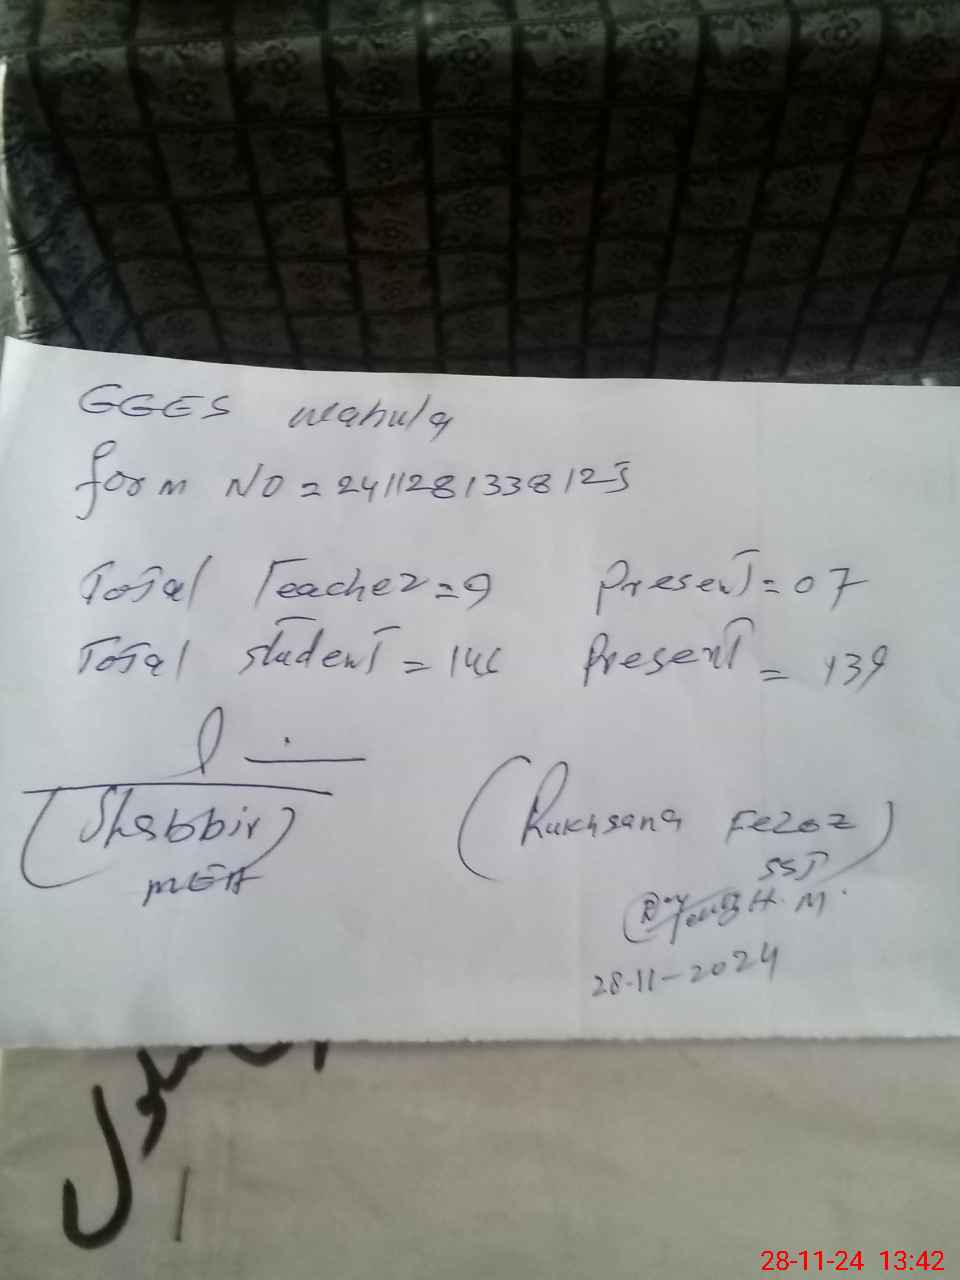 GGES wahula
form NO = 2411281338125
Total Teacher = 9 Present = 07
Total student = 146 Present = 139
(Shabbir)
MEA
(Rukhsana Feroz)
SST
H.M.
28-11-2024
28-11-24 13:42